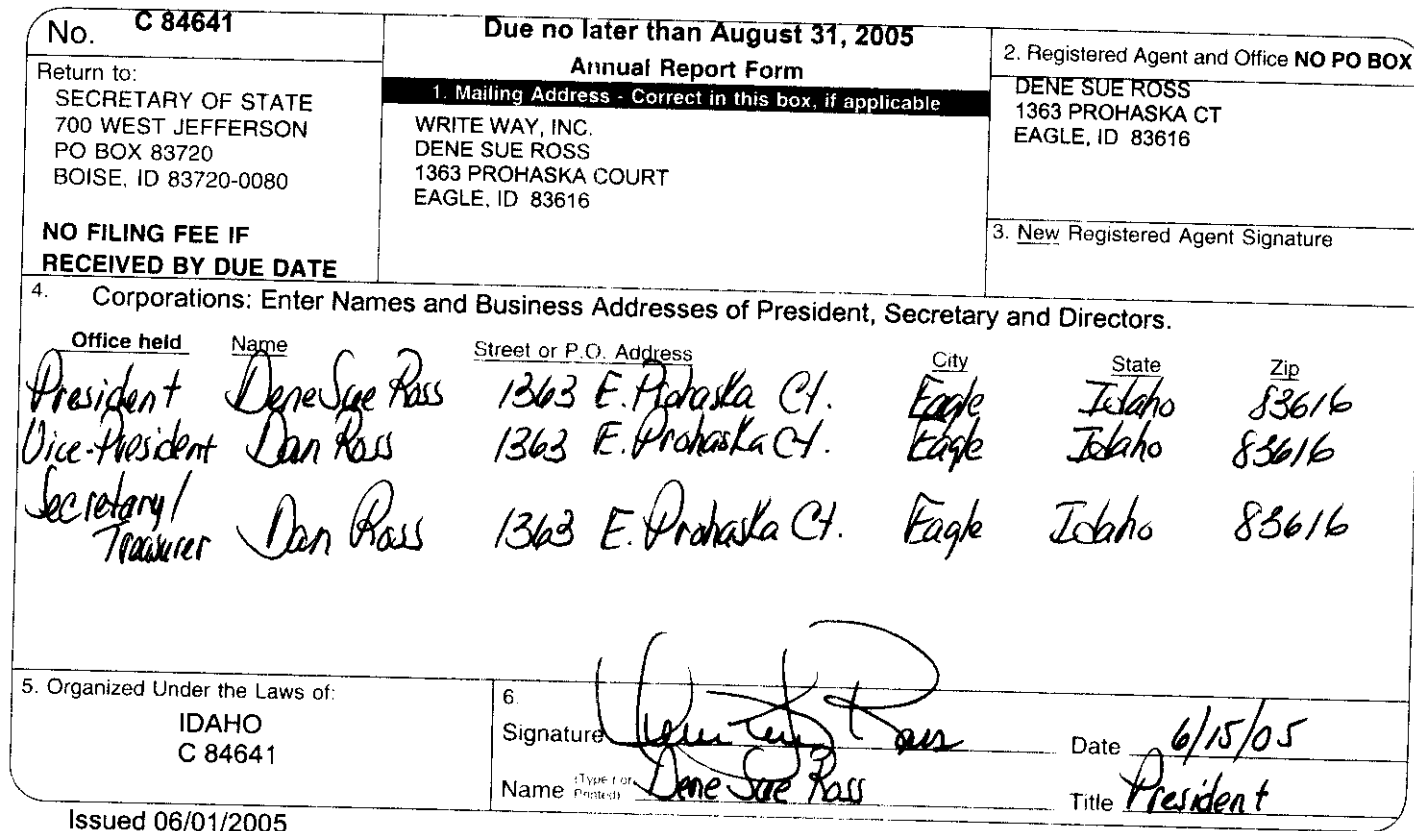 No. C 84641
Return to:
SECRETARY OF STATE
700 WEST JEFFERSON
PO BOX 83720
BOISE, ID 83720-0080
NO FILING FEE IF
RECEIVED BY DUE DATE
Due no later than August 31, 2005
Annual Report Form
1. Mailing Address - Correct in this box, if applicable
WRITE WAY, INC.
DENE SUE ROSS
1363 PROHASKA COURT
EAGLE, ID 83616
2. Registered Agent and Office NO PO BOX
DENE SUE ROSS
1363 PROHASKA CT
EAGLE, ID 83616
3. New Registered Agent Signature
4. Corporations: Enter Names and Business Addresses of President, Secretary and Directors.
Office held Name Street or P.O. Address City State Zip
President Dene Sue Ross 1363 E. Prohaska Ct. Eagle Idaho 83616
Vice-President Dan Ross 1363 E. Prohaska Ct. Eagle Idaho 83616
Secretary/
Treasurer Dan Ross 1363 E. Prohaska Ct. Eagle Idaho 83616
5. Organized Under the Laws of:
IDAHO
C 84641
6.
Signature Dene Sue Ross Date 6/15/05
Name (Type or Printed) Dene Sue Ross Title President
Issued 06/01/2005